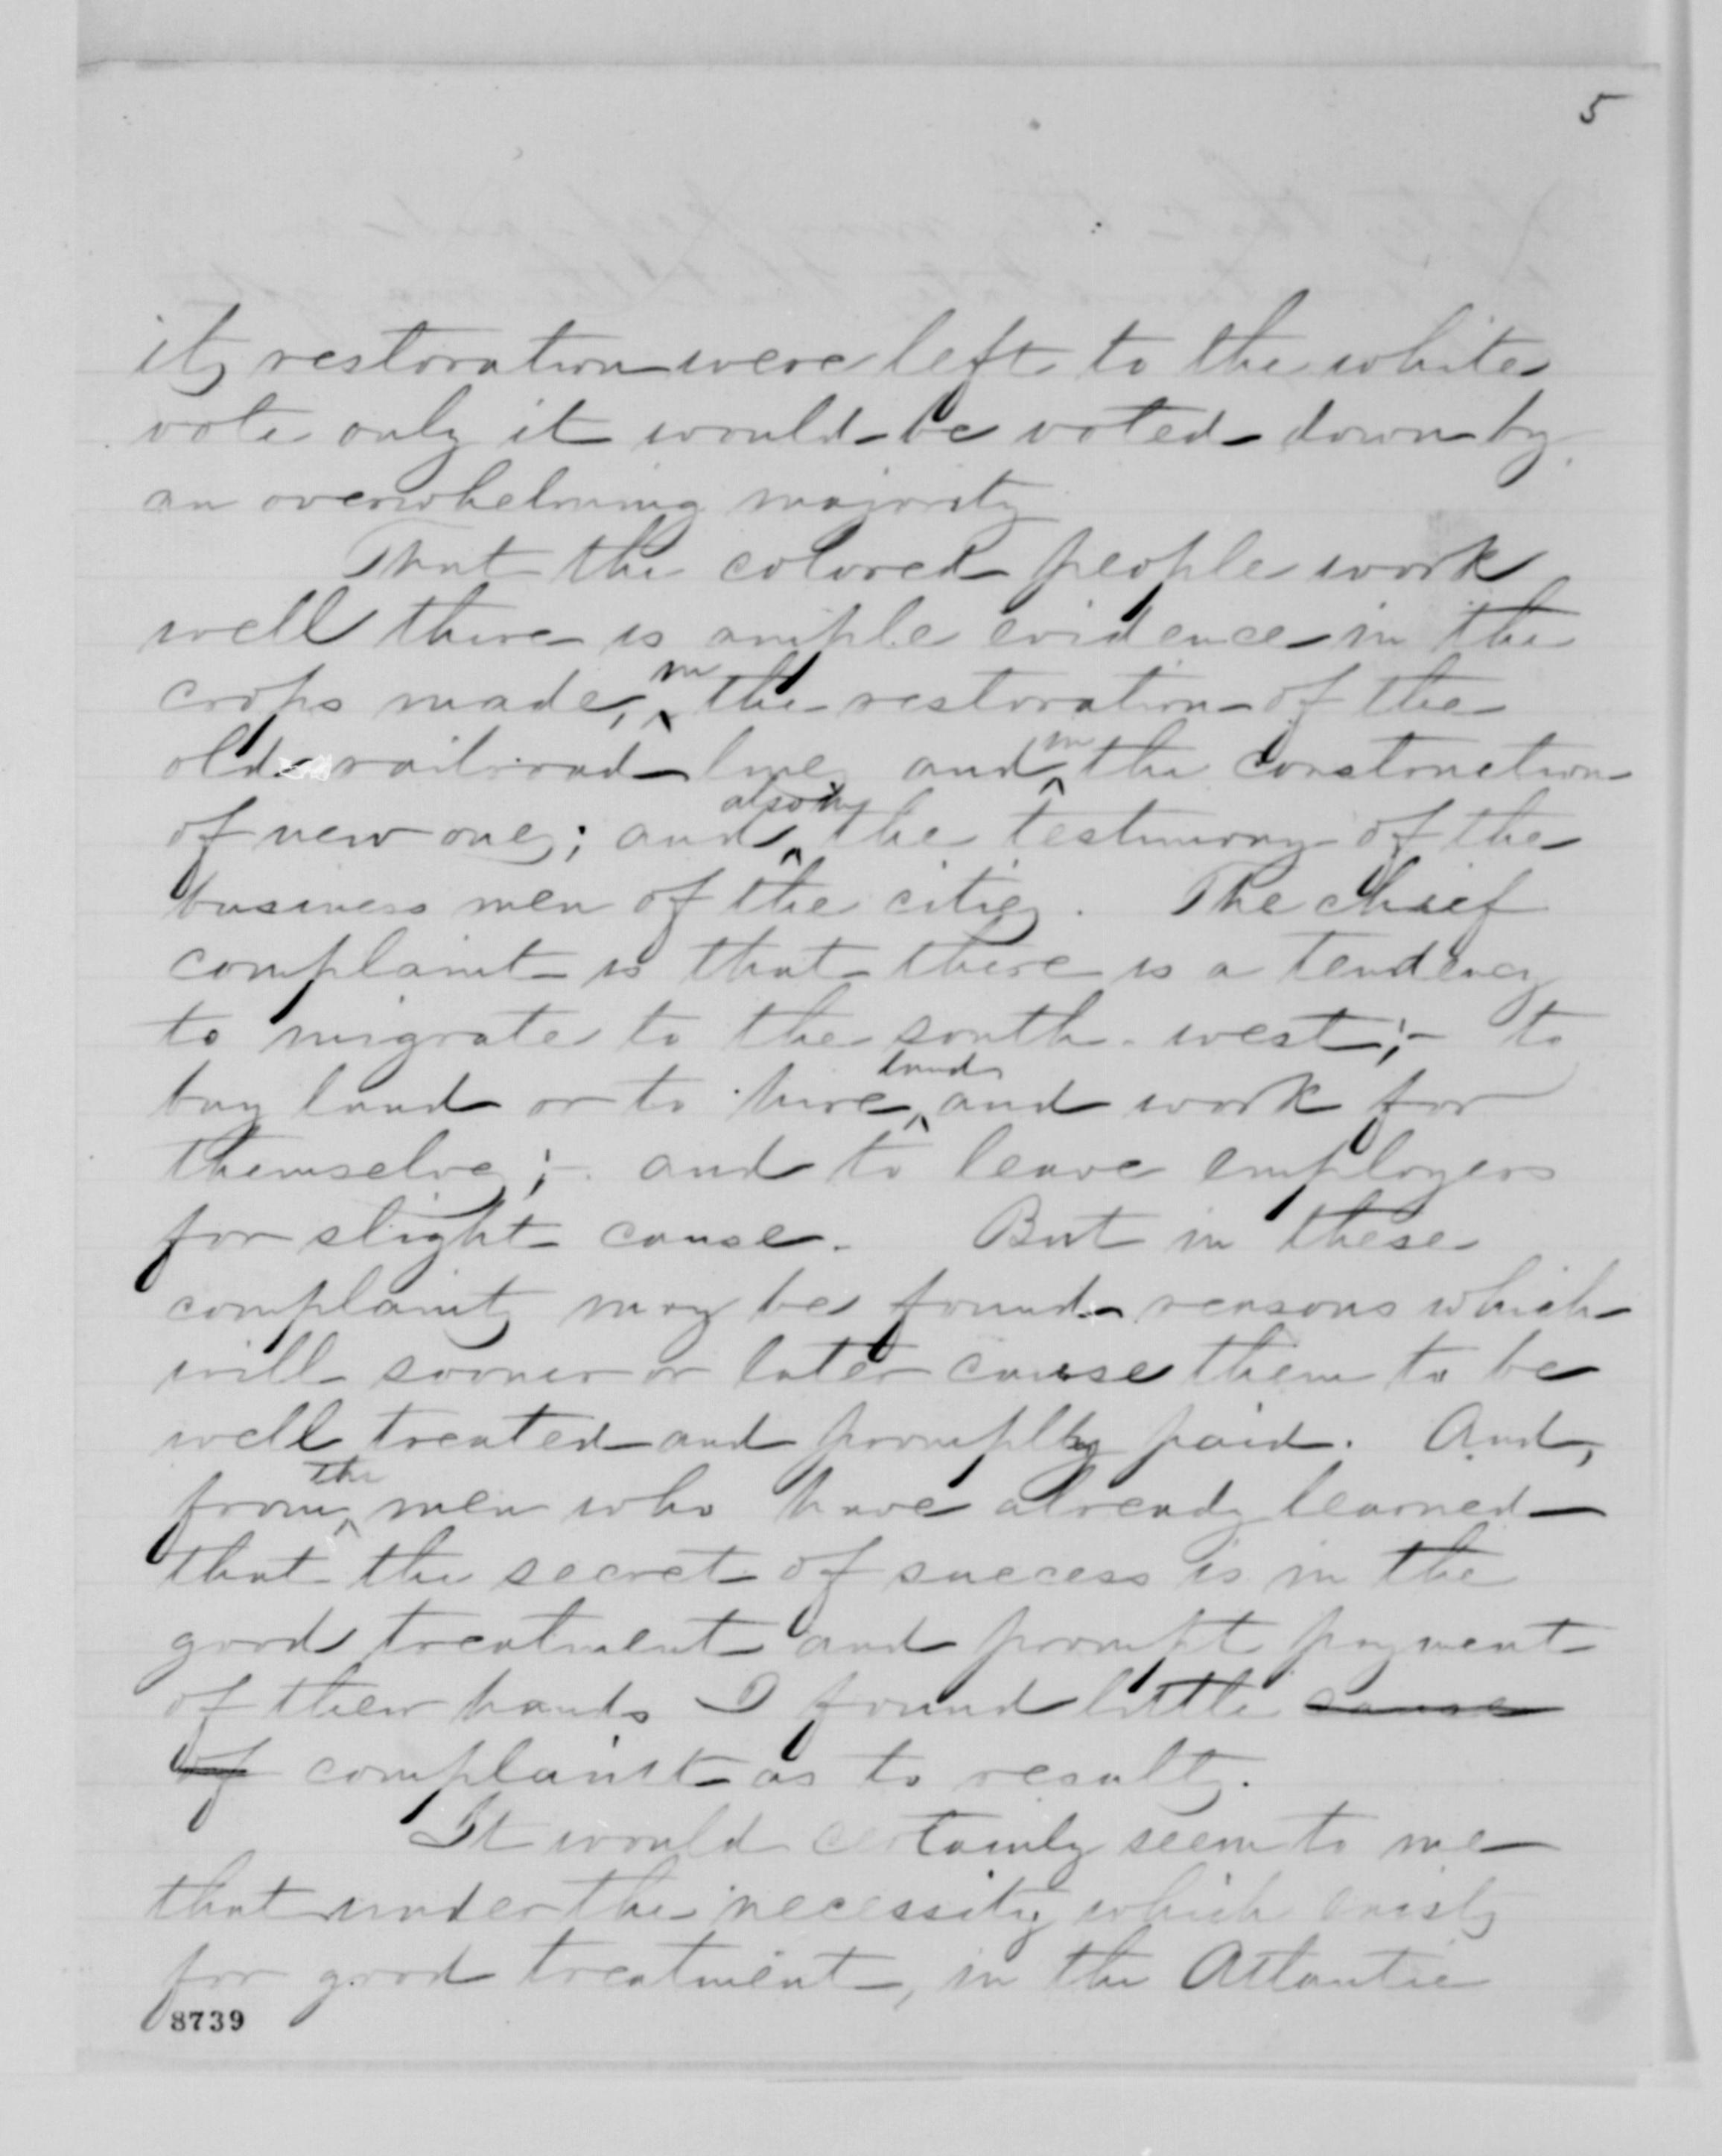 5
its restoration were left to the white
vote only it would be voted down by
an overwhelming majority
That the colored people work
well there is ample evidence in the
crops made, in the restoration of the
old railroad lines and in the construction
of new ones; and also in the testimony of the
business men of the cities. The chief
complaint is that there is a tendency
to migrate to the south-west;- to
buy land or to hire land and work for
themselves;- and to leave employers
for slight cause. But in these
complaints may be found reasons which
will sooner or later cause them to be
well treated and promptly paid. And,
from the men who have already learned
that the secret of success is in the
good treatment and prompt payment
of their hands I found little cause
of complaint as to results.
It would certainly seem to me
that under the necessity which exists
for good treatment, in the Atlantic
8739